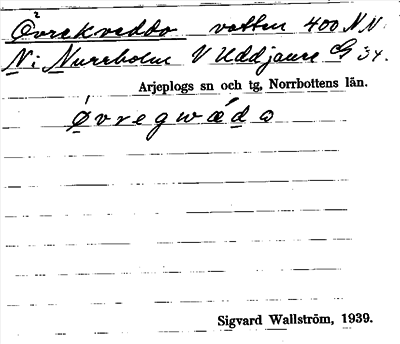 Övrekveddo vatten 400 NN.
N i Nurrholm V Uddjaure G 34.
Arjeplogs sn och tg, Norrbottens län.
Øvregwædo
Sigvard Wallström, 1939.